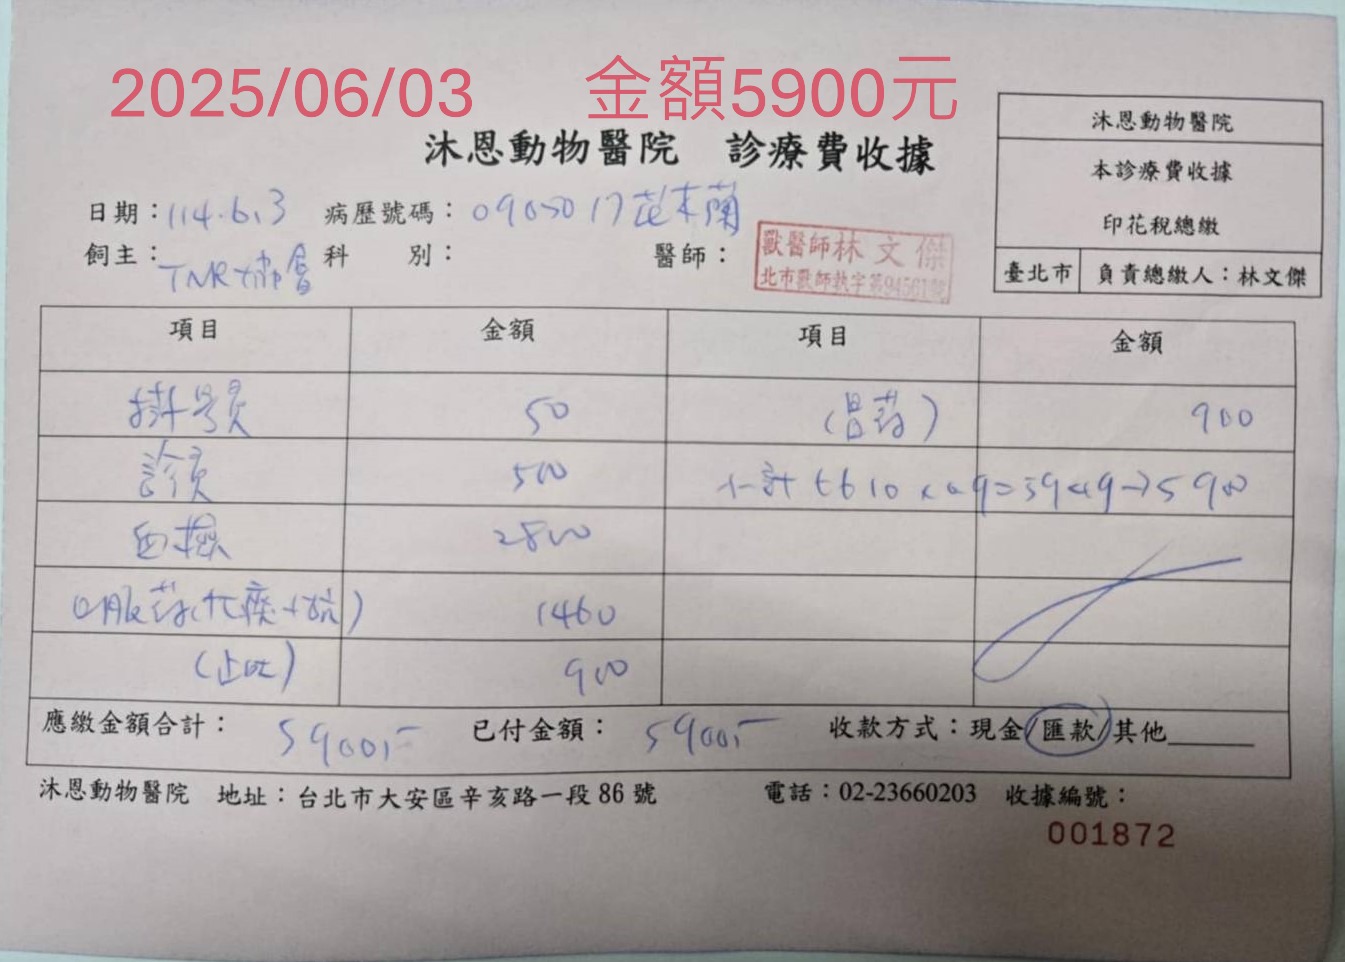 2025/06/03 金額5900元
沐恩動物醫院 診療費收據
沐恩動物醫院
本診療費收據
印花稅總繳
臺北市 負責總繳人：林文傑
日期：114.6.3 病歷號碼：0905017花木蘭
飼主：TNR協會 科 別： 醫師：
獸醫師林文傑
北市獸師執字第94561號
項目 金額 項目 金額
掛號費 50 (胃藥) 900
診費 500 小計 6610×0.9=5949→5900
血檢 2800
口服藥( 1460
(止吐) 900
應繳金額合計：5900,- 已付金額：5900,- 收款方式：現金/匯款/其他______
沐恩動物醫院 地址：台北市大安區辛亥路一段 86 號 電話：02-23660203 收據編號：
001872